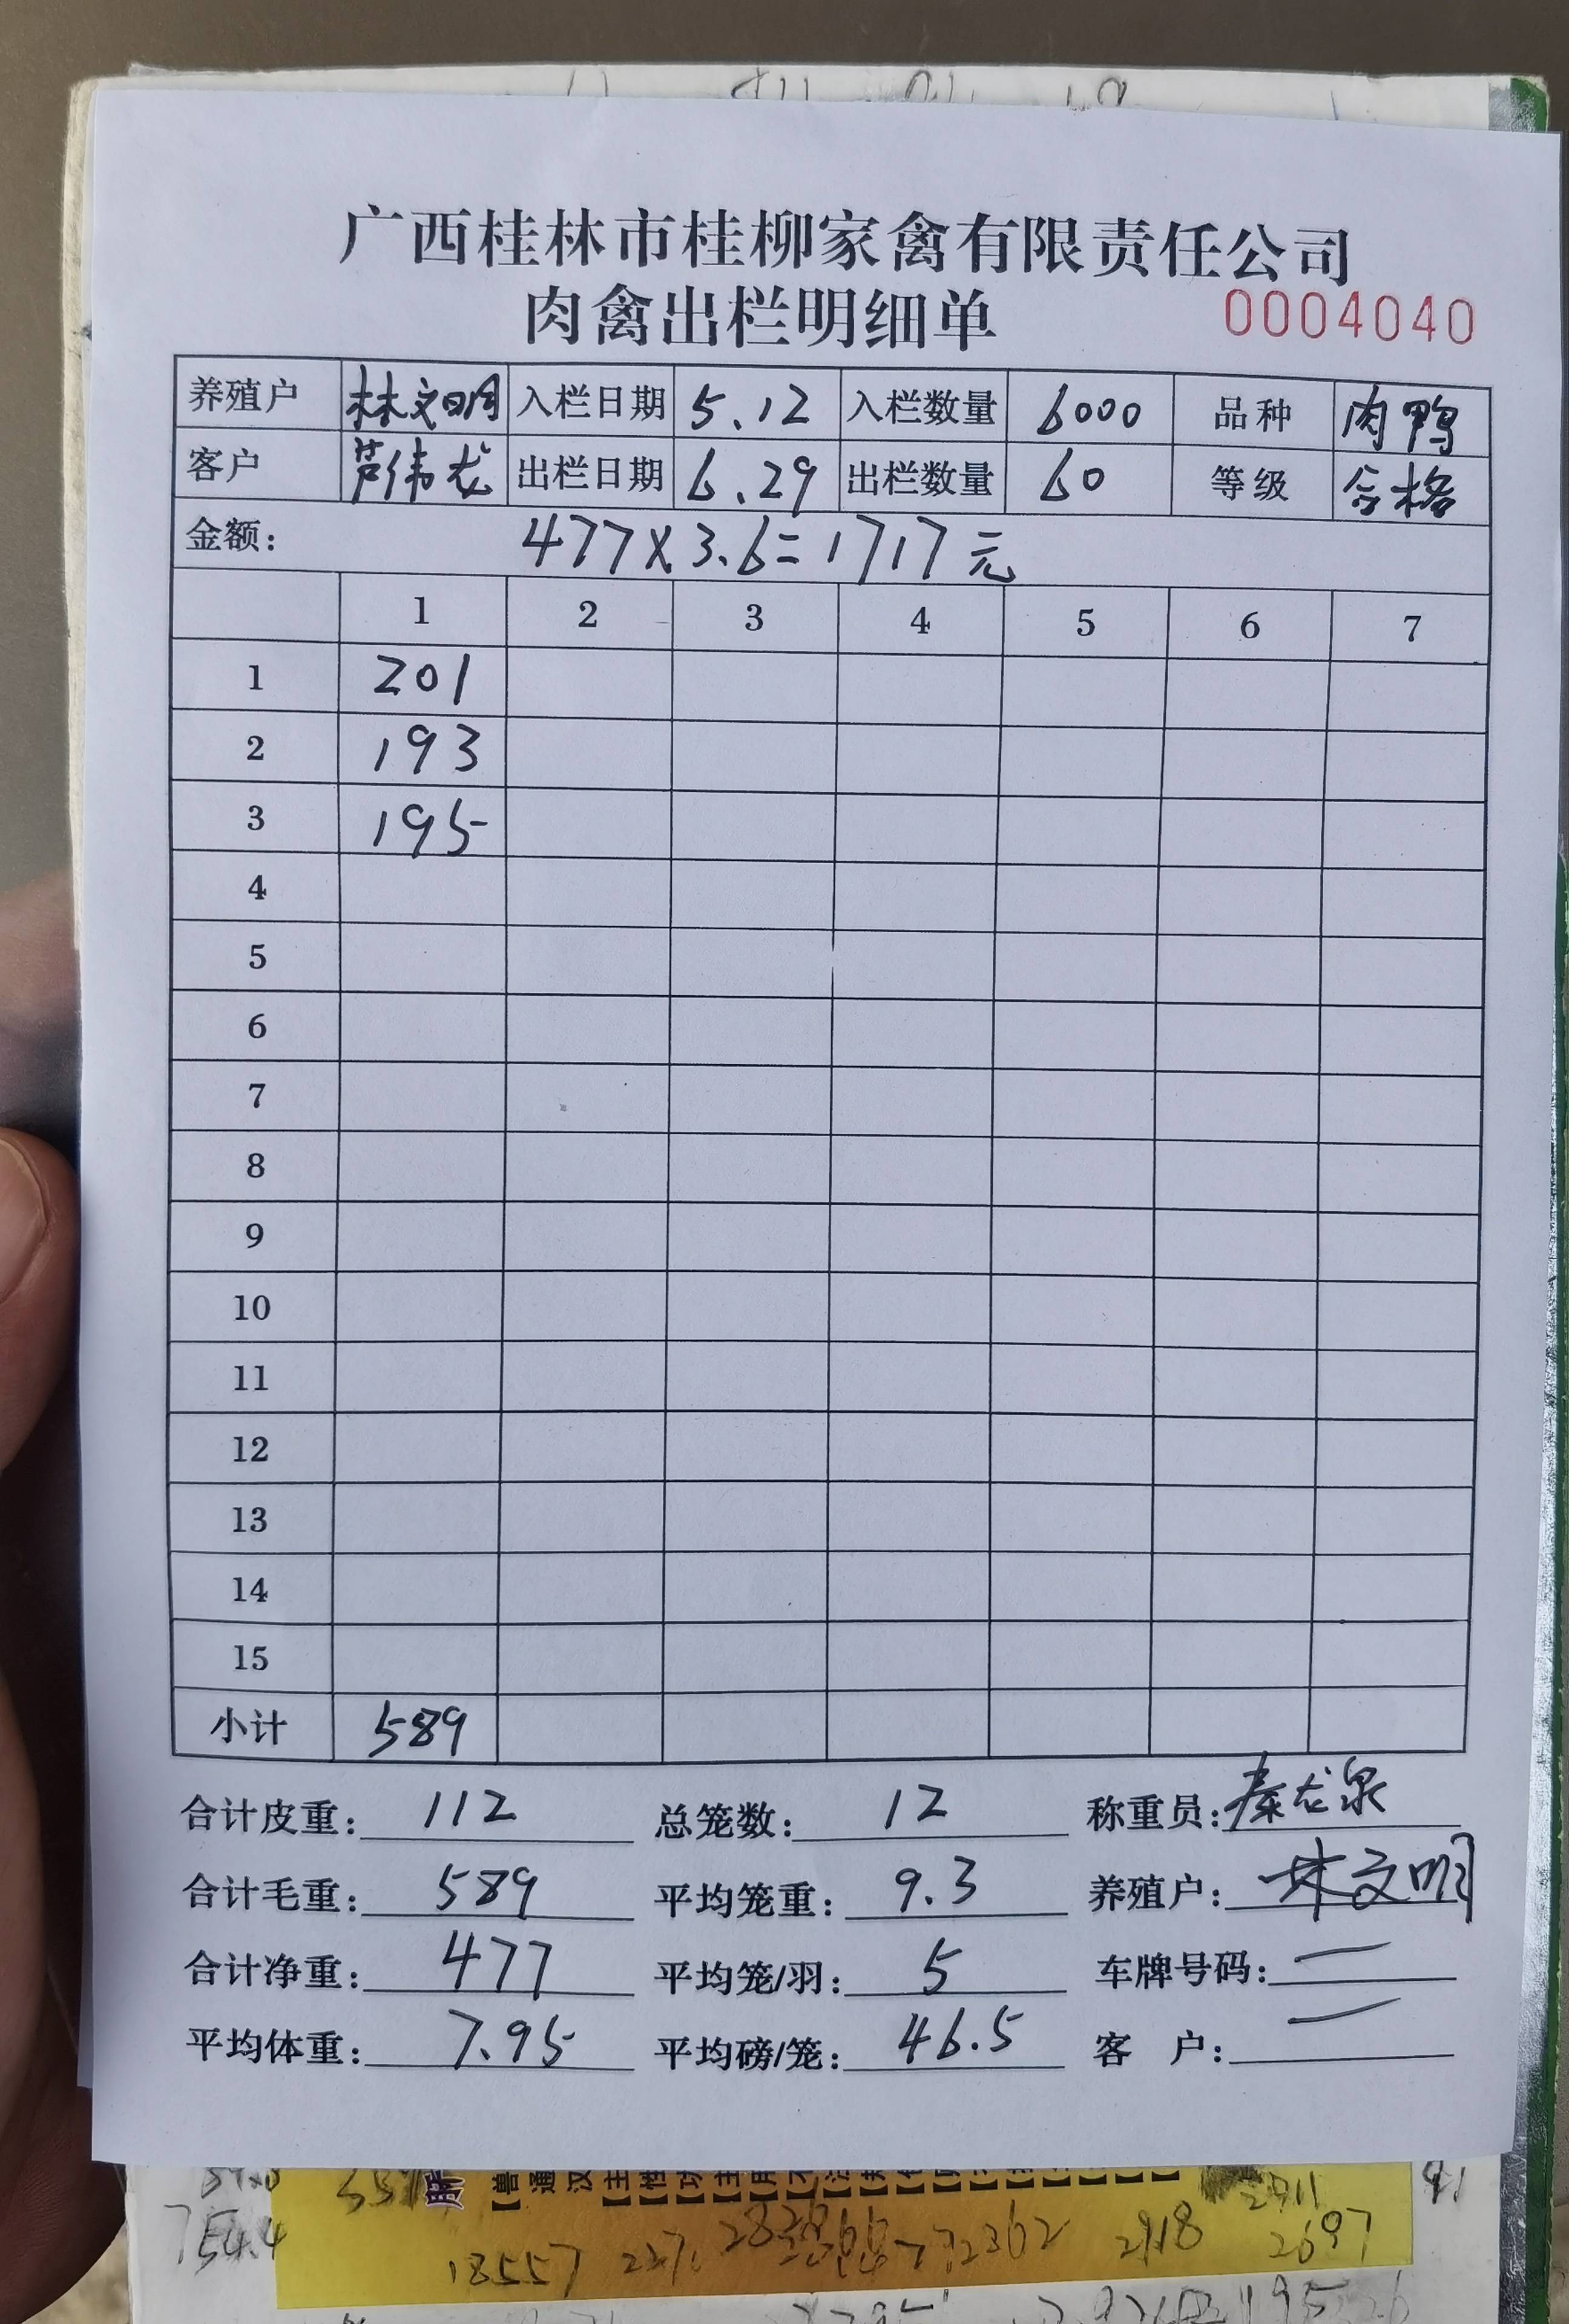 广西桂林市桂柳家禽有限责任公司
肉禽出栏明细单 0004040
养殖户 林文明 入栏日期 5.12 入栏数量 6000 品种 肉鸭
客户 芦伟龙 出栏日期 6.29 出栏数量 60 等级 合格
金额: 477X3.6=1717元
1 2 3 4 5 6 7
1 201
2 193
3 195
4
5
6
7
8
9
10
11
12
13
14
15
小计 589
合计皮重: 112 总笼数: 12 称重员: 秦龙泉
合计毛重: 589 平均笼重: 9.3 养殖户: 林文明
合计净重: 477 平均笼/羽: 5 车牌号码: 一
平均体重: 7.95 平均磅/笼: 46.5 客 户: 一
754.4
18557 2362 2918 2697